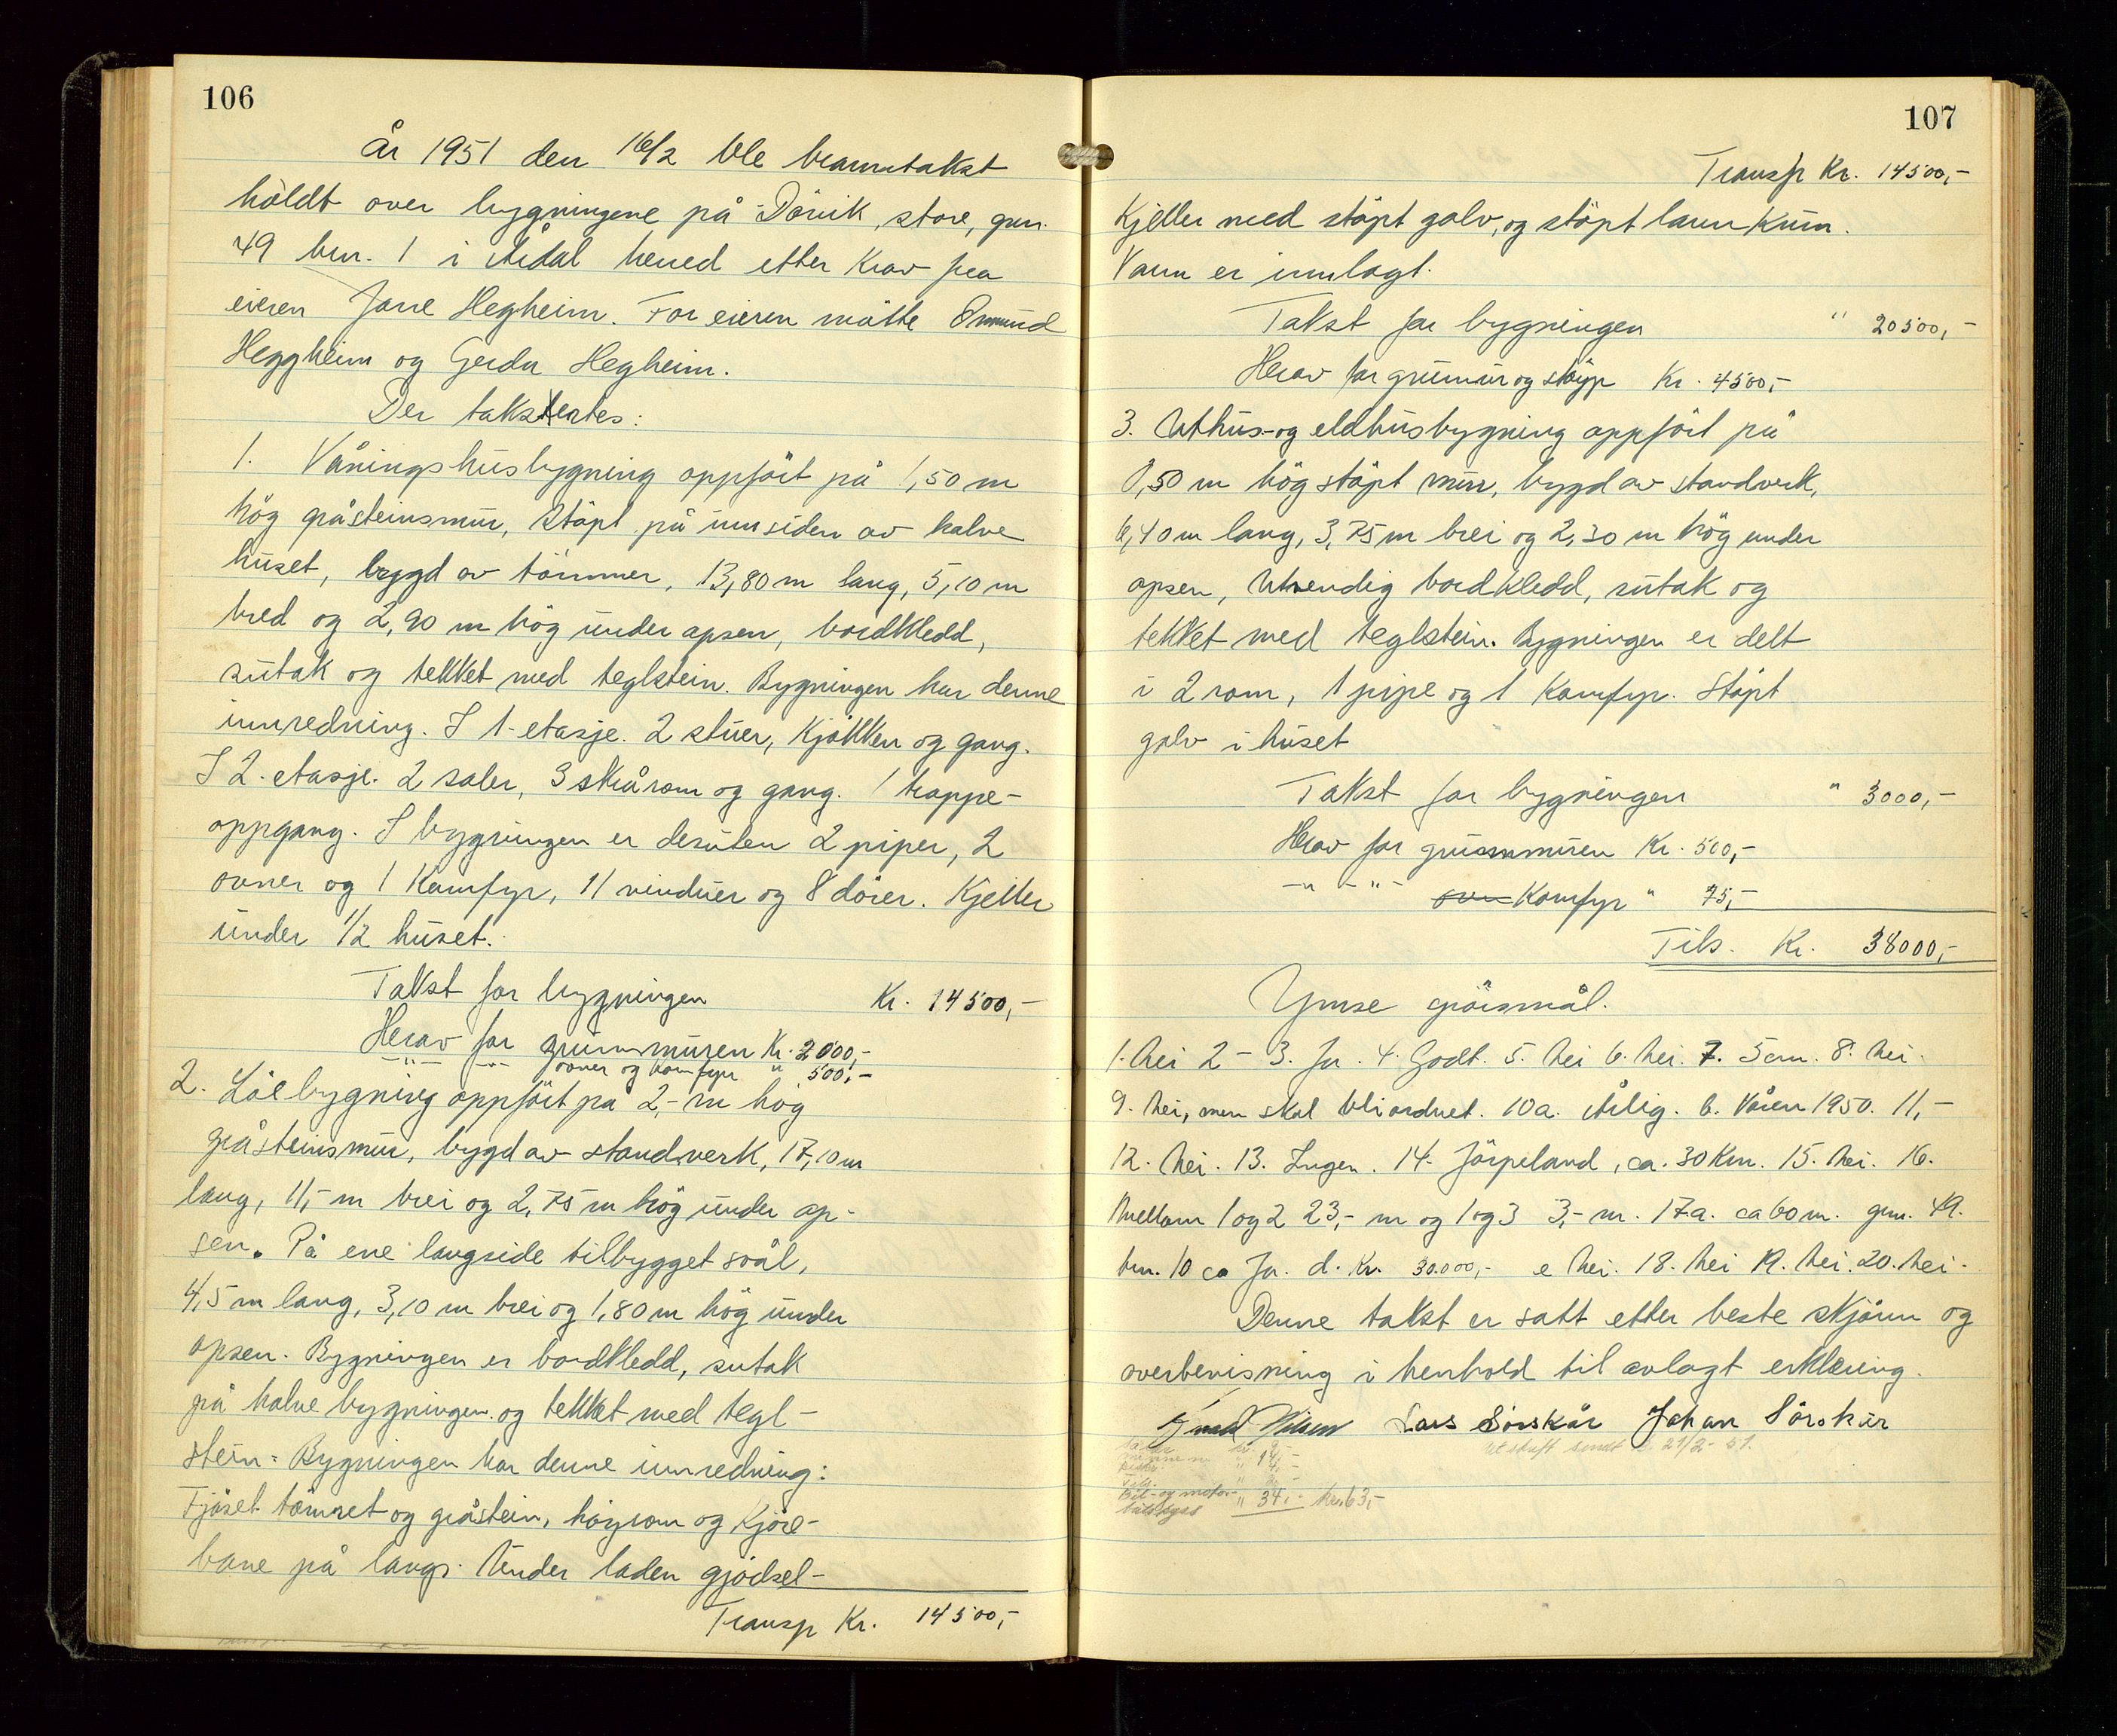 106
År 1951 den 16/2 ble branntakst
holdt over bygningene på Dörvik, store, gnr.
49 bnr. 1 i Årdal herred etter krav fra
eieren Jane Hegheim. For eieren måtte Omund
Heggheim og Gerda Hegheim.
Der taksertes:
1. Våningshusbygning oppfört på 1,50 m
hög gråsteinsmur, stöpt på innsiden av halve
huset, bygd av tömmer, 13,80 m lang, 5,10 m
bred og 2,90 m hög under opsen, bordkledd,
sutak og tekket med teglstein. Bygningen har denne
innredning. I 1-etasje. 2 stuer, kjökken og gang.
I 2. etasje. 2 saler, 3 skrårom og gang. 1 trappe-
oppgang. I bygningen er desuten 2 piper, 2
ovner og 1 Komfyr, 11 vinduer og 8 dörer. Kjeller
under 1/2 huset.
Takst for bygningen Kr. 14500,-
Herav for grunnmuren Kr. 2000,-
-"- -"- ovner og komfyr " 500,-
2. Löebygning oppfört på 2,- m hög
gråsteinsmur, bygd av standverk, 17,10 m
lang, 11,- m brei og 2,75 m hög under op-
sen. På ene langside tilbygget svål,
4,5 m lang, 3,10 m brei og 1,80 m hög under
opsen. Bygningen er bordkledd, sutak
på halve bygningen og tekket med tegl-
stein. Bygningen har denne innredning:
Fjöset tömret og gråstein, höyrom og kjöre-
bane på langs. Under laden gjödsel-
Transp Kr. 14500,-
107
Transp Kr. 14500,-
kjeller med stöpt golv, og stöpt lannkum.
Vann er innlagt.
Takst for bygningen " 20500,-
Herav for grunmur og stöyp Kr. 4500,-
3. Uthus- og eldhusbygning oppfört på
0,50 m hög stöpt mur, bygd av standverk,
6,40 m lang, 3,75 m brei og 2,30 m hög under
opsen, Utvendig bordkledd, sutak og
tekket med teglstein. Bygningen er delt
i 2 rom, 1 pipe og 1 Komfyr. Stöpt
golv i huset
Takst for bygningen " 3000,-
Herav for grunnmuren Kr. 500,-
-"- -"- ovn Komfyr " 75,-
Tils. Kr. 38000,-
Ymse spörsmål.
1. Nei 2-3. Ja. 4. Godt. 5. Nei 6. Nei. 7. 5cm. 8. Nei.
9. Nei, men skal bli ordnet. 10a. Årlig. b. Våren 1950. 11,-
12. Nei. 13. Ingen. 14. Jörpeland, ca. 30 Km. 15. Nei. 16.
Mellom 1 og 2 23,- m og 1 og 3 3,- m. 17.a. ca 60 m. gnr. 49.
bnr. 10 ca Ja. d. Kr. 30.000,- e Nei. 18. Nei 19. Nei. 20. Nei.
Denne takst er satt etter beste skjönn og
overbevisning i henhold til avlagt erklæring.
Nilsen Lars Sörskår Johan Sörskår
Utskrift sendt 21/2-51.
" 14,-
Bil- og motor- " 34,- Kr. 63,-